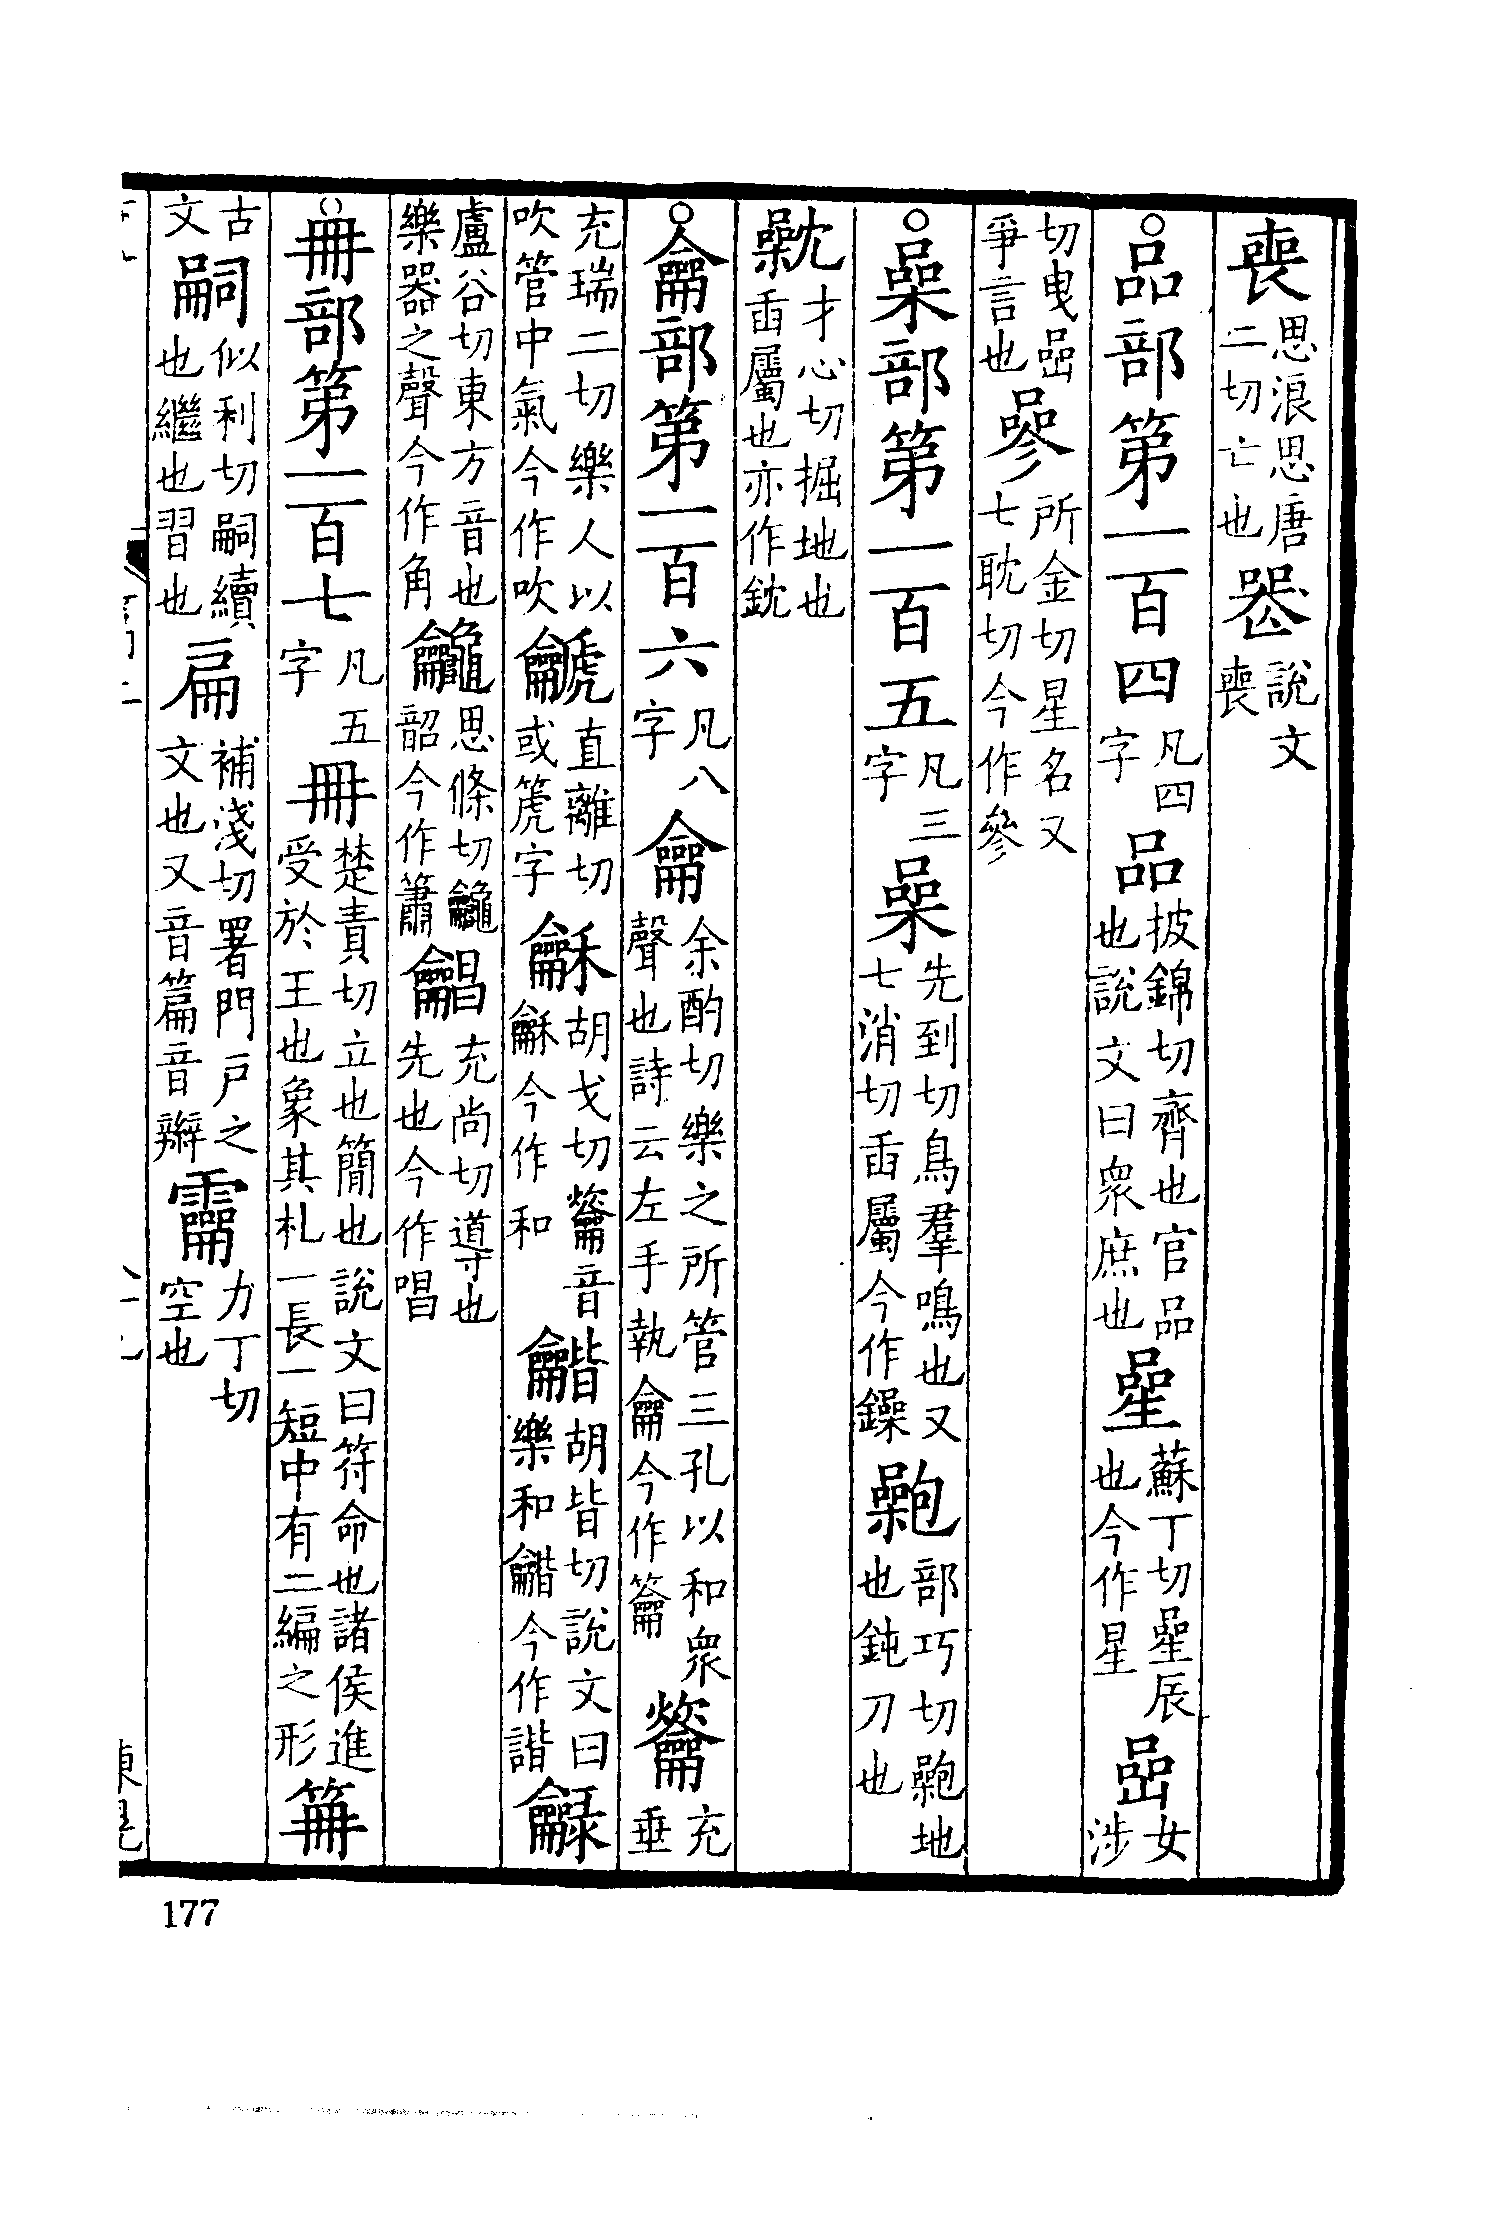 喪思浪思唐二切亡也𠸶說文喪
○品部第一百四凡四字品披錦切齊也官品也說文曰眾庶也曐蘇丁切曐辰也今作星嵒女涉
切曳嵒爭言也㕘所金切星名又七耽切今作參
○喿部第一百五凡三字喿先到切鳥羣鳴也又七消切臿屬今作鐰部巧切地也鈍刀也
才心切掘地也臿屬也亦作鈂
○龠部第一百六凡八字龠余酌切樂之所管三孔以和眾聲也詩云左手執龠今作籥龡充垂
充瑞二切樂人以吹管中氣今作吹䶵直離切或篪字龢胡戈切籥音龢今作和龤胡皆切說文曰樂和龤今作諧䶂
盧谷切東方音也樂器之聲今作角思條切韶今作簫充尚切導也先也今作唱
○冊部第一百七凡五字冊楚責切立也簡也說文曰符命也諸侯進受於王也象其札一長一短中有二編之形笧
古文嗣似利切嗣續也繼也習也扁補淺切署門戶之文也又音篇音辯𠕋力丁切空也
177